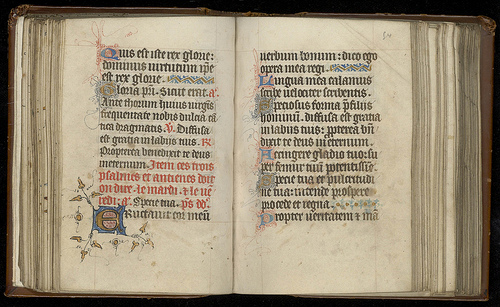 Quis est iste rex glorie:
dominus uirtutum ip̄e
est rex glorie.
Gloria pr̄i. Sicut erat. a᷎.
Ante thorum huius uirgīs
frequentate nobis dulcia cā
tica dragmatis. V̷. Diffusa
est gratia in labijs tuis. R̷.
Propterea benedixit te deus
in eternum. Item ces trois
psalmes et antienes dit
on dire le mardi. ⁊ le ue
redi: a᷎. Specie tua. p̄s dd̄.
Eructauit cor meū
uerbum bonum: dico ego
opera mea regi.
Lingua mea calamus
scribe uelociter scribentis.
Speciosus forma p̄ filijs
hominū. diffusa est gratia
in labijs tuis: ꝓpterea bn̄
dixit te deus in eternum.
Accingere gladio tuo: su
per femur tuū potentissīe.
Specie tua et pulcritudi
ne tua: intende prospere
procede et regna.
Propter ueritatem ⁊ mā